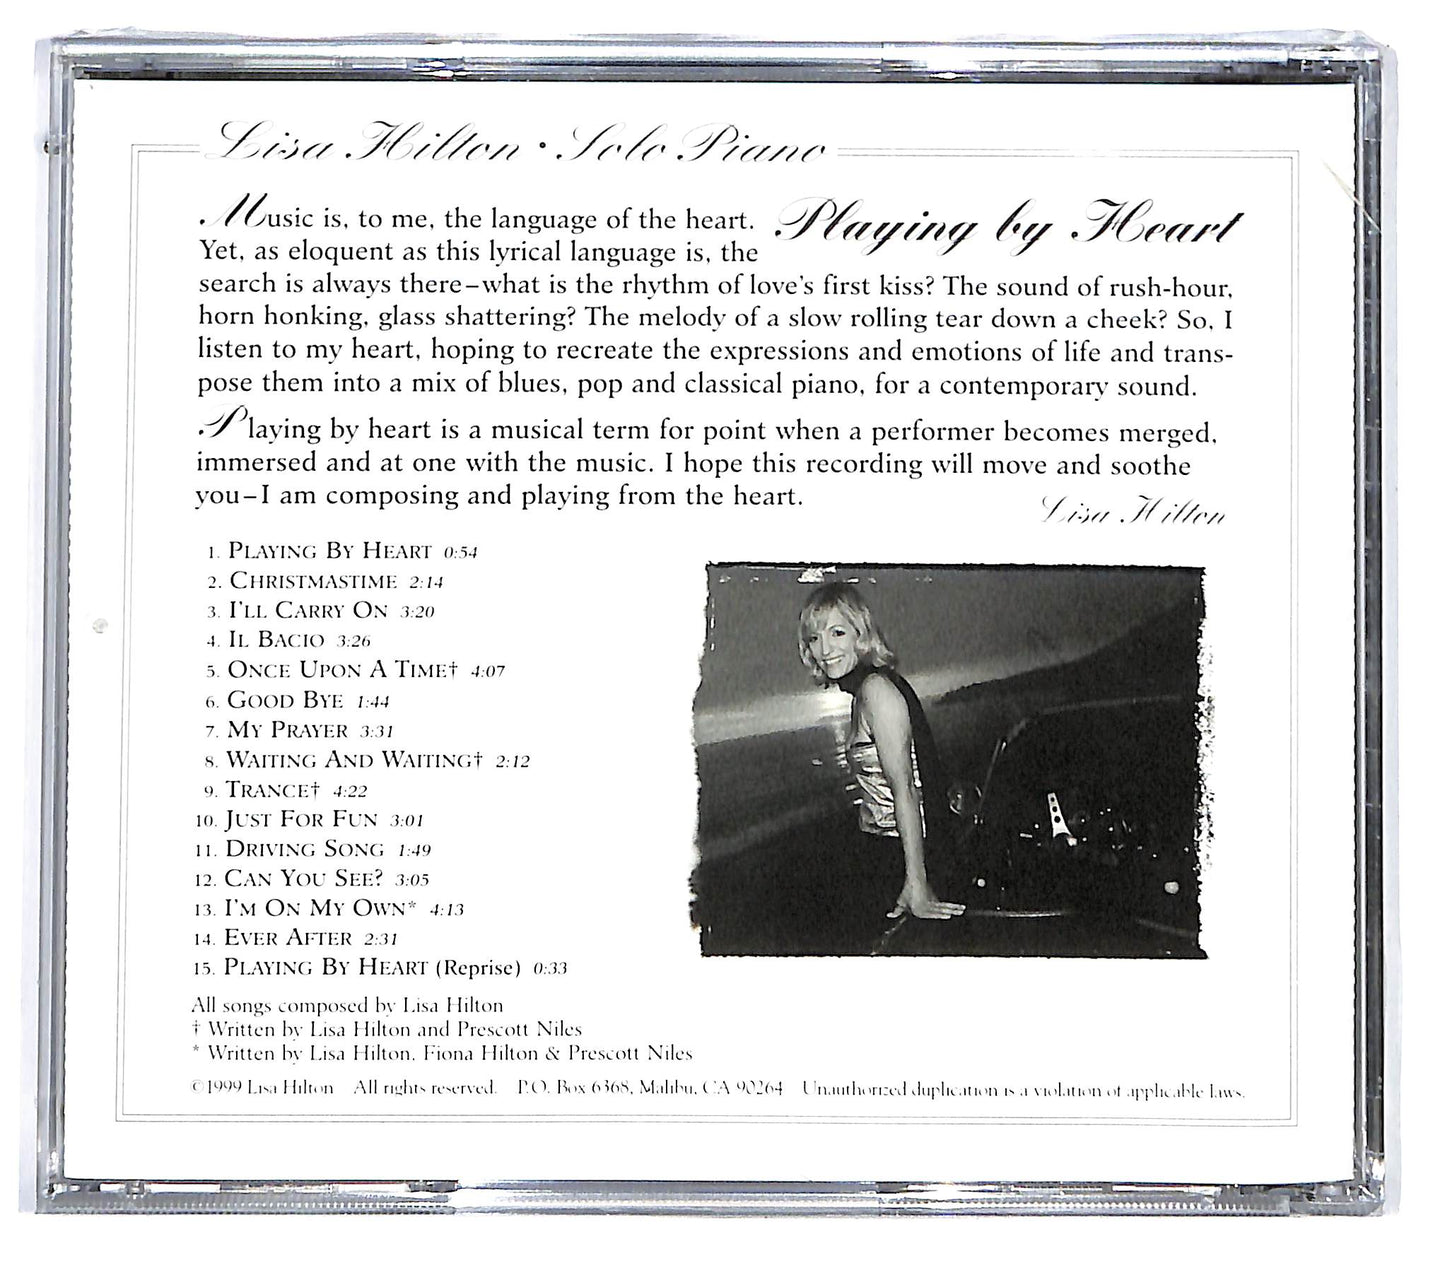 Lisa Hilton • Solo Piano
Playing by Heart
Music is, to me, the language of the heart.
Yet, as eloquent as this lyrical language is, the
search is always there–what is the rhythm of love's first kiss? The sound of rush-hour,
horn honking, glass shattering? The melody of a slow rolling tear down a cheek? So, I
listen to my heart, hoping to recreate the expressions and emotions of life and trans-
pose them into a mix of blues, pop and classical piano, for a contemporary sound.
Playing by heart is a musical term for point when a performer becomes merged,
immersed and at one with the music. I hope this recording will move and soothe
you–I am composing and playing from the heart.
Lisa Hilton
1. PLAYING BY HEART 0:54
2. CHRISTMASTIME 2:14
3. I'LL CARRY ON 3:20
4. IL BACIO 3:26
5. ONCE UPON A TIME† 4:07
6. GOOD BYE 1:44
7. MY PRAYER 3:31
8. WAITING AND WAITING† 2:12
9. TRANCE† 4:22
10. JUST FOR FUN 3:01
11. DRIVING SONG 1:49
12. CAN YOU SEE? 3:05
13. I'M ON MY OWN* 4:13
14. EVER AFTER 2:31
15. PLAYING BY HEART (Reprise) 0:33
All songs composed by Lisa Hilton
† Written by Lisa Hilton and Prescott Niles
* Written by Lisa Hilton, Fiona Hilton & Prescott Niles
©1999 Lisa Hilton All rights reserved. P.O. Box 6368, Malibu, CA 90264 Unauthorized duplication is a violation of applicable laws.